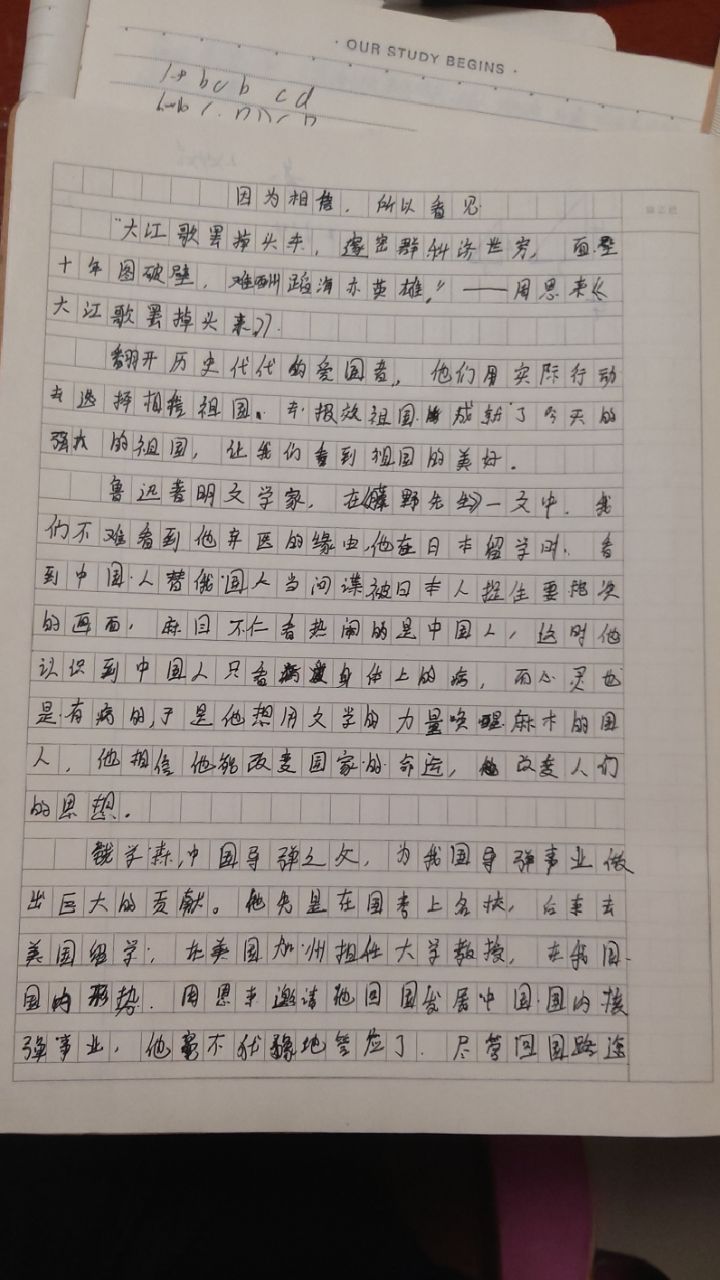 · OUR STUDY BEGINS ·
b c b c d
因为相信，所以看见
"大江歌罢掉头东，邃密群科济世穷，面壁
十年图破壁，难酬蹈海亦英雄。"——周恩来《
大江歌罢掉头东》。
翻开历史代代的爱国者，他们用实际行动
去选择相信祖国、去报效祖国，成就了今天的
强大的祖国，让我们看到祖国的美好。
鲁迅著明文学家，在《藤野先生》一文中，我
们不难看到他弃医的缘由，他在日本留学时，看
到中国人替俄国人当间谍被日本人捉住要
的画面，麻目不仁看热闹的是中国人，这时他
认识到中国人只看病身体上的病，而心灵也
是有病的，于是他想用文学的力量唤醒麻木的国
人，他相信他能改变国家的命运，改变人们
的思想。
钱学森，中国导弹之父，为我国导弹事业做
出巨大的贡献。他先是在国考上名校，后来去
美国留学，在美国加州担任大学教授，在我国
国内形势，周恩来邀请他回国发展中国国内核
弹事业，他毫不犹豫地答应了，尽管回国路途